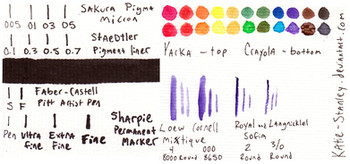 Sakura Pigma
Micron
005 01 03 05
Staedtler
Pigment Liner
0.1 0.3 0.5 0.7
Faber-Castell
Pitt Artist Pen
S F
Sharpie
Permanent
Marker
Pen Ultra fine Extra Fine Fine
Yarka - top Crayola - bottom
Loew Cornell
Mixtique
4 000
8000 Round 8650
Royal and Langnickel
Sofia
2 3/0
Round Round
Katie-Stanley.deviantart.com